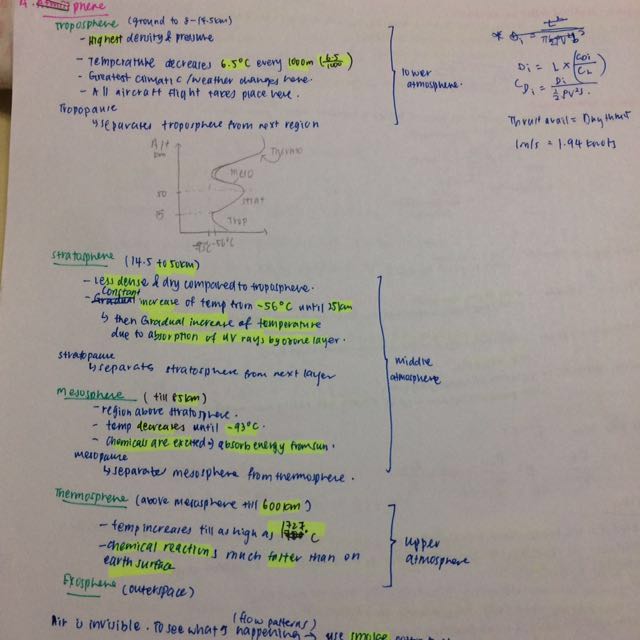 Troposphere (ground to 8-14.5km)
- Highest density & pressure
- Temperature decreases 6.5°C every 1000m (6.5/1000)
- Greatest climatic / weather changes here.
- All aircraft flight takes place here.
lower atmosphere.
Tropopause
↳ separates troposphere from next region
Di = L × (CDi/CL)
CDi = Di / ½ρV²S.
Thrust avail = Dry thrust
1m/s = 1.94 knots
Alt km
Thermo
Meso
50
strat
15
Trop
-93°C -56°C
Stratosphere (14.5 to 50km)
- Less dense & dry compared to troposphere.
- Constant increase of temp from -56°C until 25km
↳ then Gradual increase of temperature
due to absorption of UV rays by ozone layer.
stratopause
↳ separates stratosphere from next layer
middle atmosphere
Mesosphere (till 85km)
- region above stratosphere.
- temp decreases until -93°C.
- chemicals are excited → absorb energy from sun.
mesopause
↳ separates mesosphere from thermosphere.
Thermosphere (above mesosphere till 600km)
- temp increases till as high as 1727 °C
- chemical reactions much faster than on
earth surface
upper atmosphere
Exosphere (outerspace)
(flow patterns)
Air is invisible. To see what's happening → use smoke